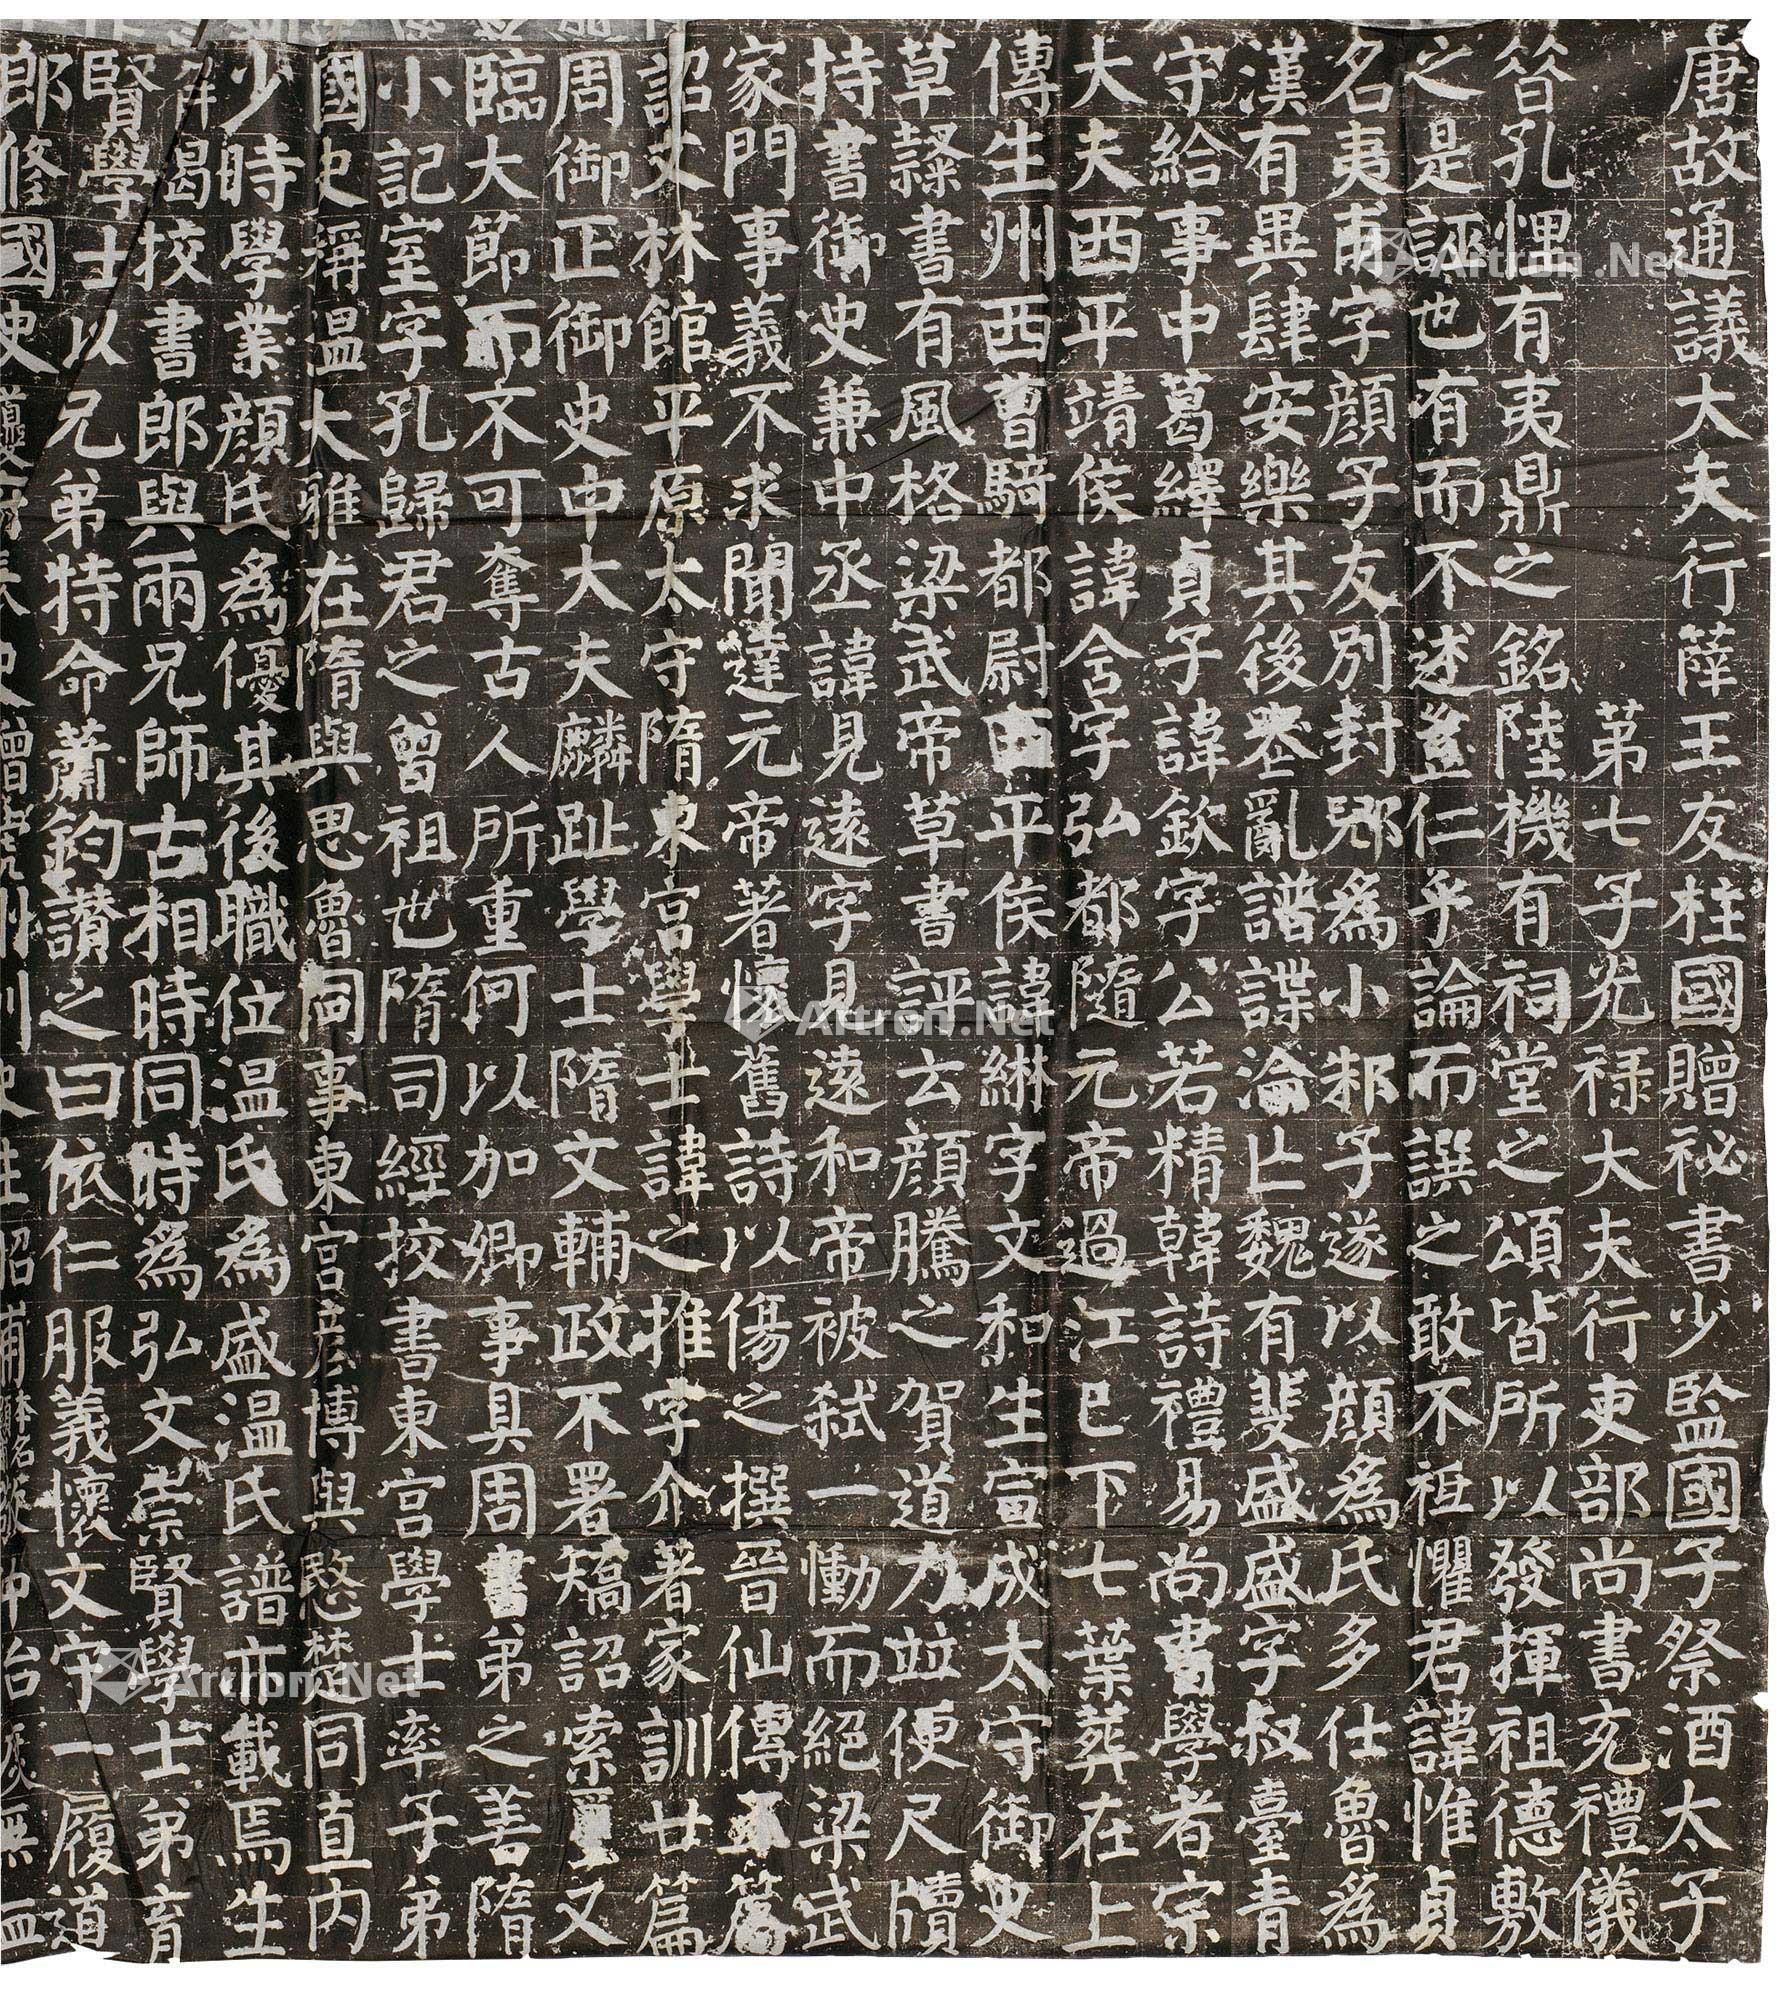 唐故通議大夫行薛王友柱國贈祕書少監國子祭酒太子
第七子光祿大夫行吏部尚書充禮儀
昔孔悝有夷鼎之銘陸機有祠堂之頌皆所以發揮祖德敷
之是誣也有而不述豈仁乎論而譔之敢不祗懼君諱惟貞
名夷甫字顏子友別封郳為小邾子遂以顏為氏多仕魯為
漢有異肆安樂其後喪亂譜諜淪亡魏有斐盛盛字叔臺青
守給事中葛繹貞子諱欽字公若精韓詩禮易尚書學者宗
大夫西平靖侯諱含字弘都隨元帝過江已下七葉葬在上
傳生州西曹騎都尉西平侯諱綝字文和生宣成太守御史
草隸書有風格梁武帝草書評云顏騰之賀道力並便尺牘
持書御史兼中丞諱見遠字見遠和帝被弒一慟而絕梁武
家門事義不求聞達元帝著懷舊詩以傷之撰晉仙傳五篇
詔文林館平原太守隋東宮學士諱之推字介著家訓廿篇
周御正御史中大夫麟趾學士隋文輔政不署矯詔索璽又
臨大節而不可奪古人所重何以加卿事具周書弟之善隋
小記室字孔歸君之曾祖也隋司經挍書東宮學士率子弟
國史稱溫大雅在隋與思魯同事東宮彥博與愍楚同直內
少時學業顏氏為優其後職位溫氏為盛溫氏譜亦載焉生
解褐挍書郎與兩兄師古相時同時為弘文崇賢學士弟育
賢學士以兄弟特命蕭鈞讚之曰依仁服義懷文守一履道
郎修國史
Artron.Net
Artron.Net
Artron.Net